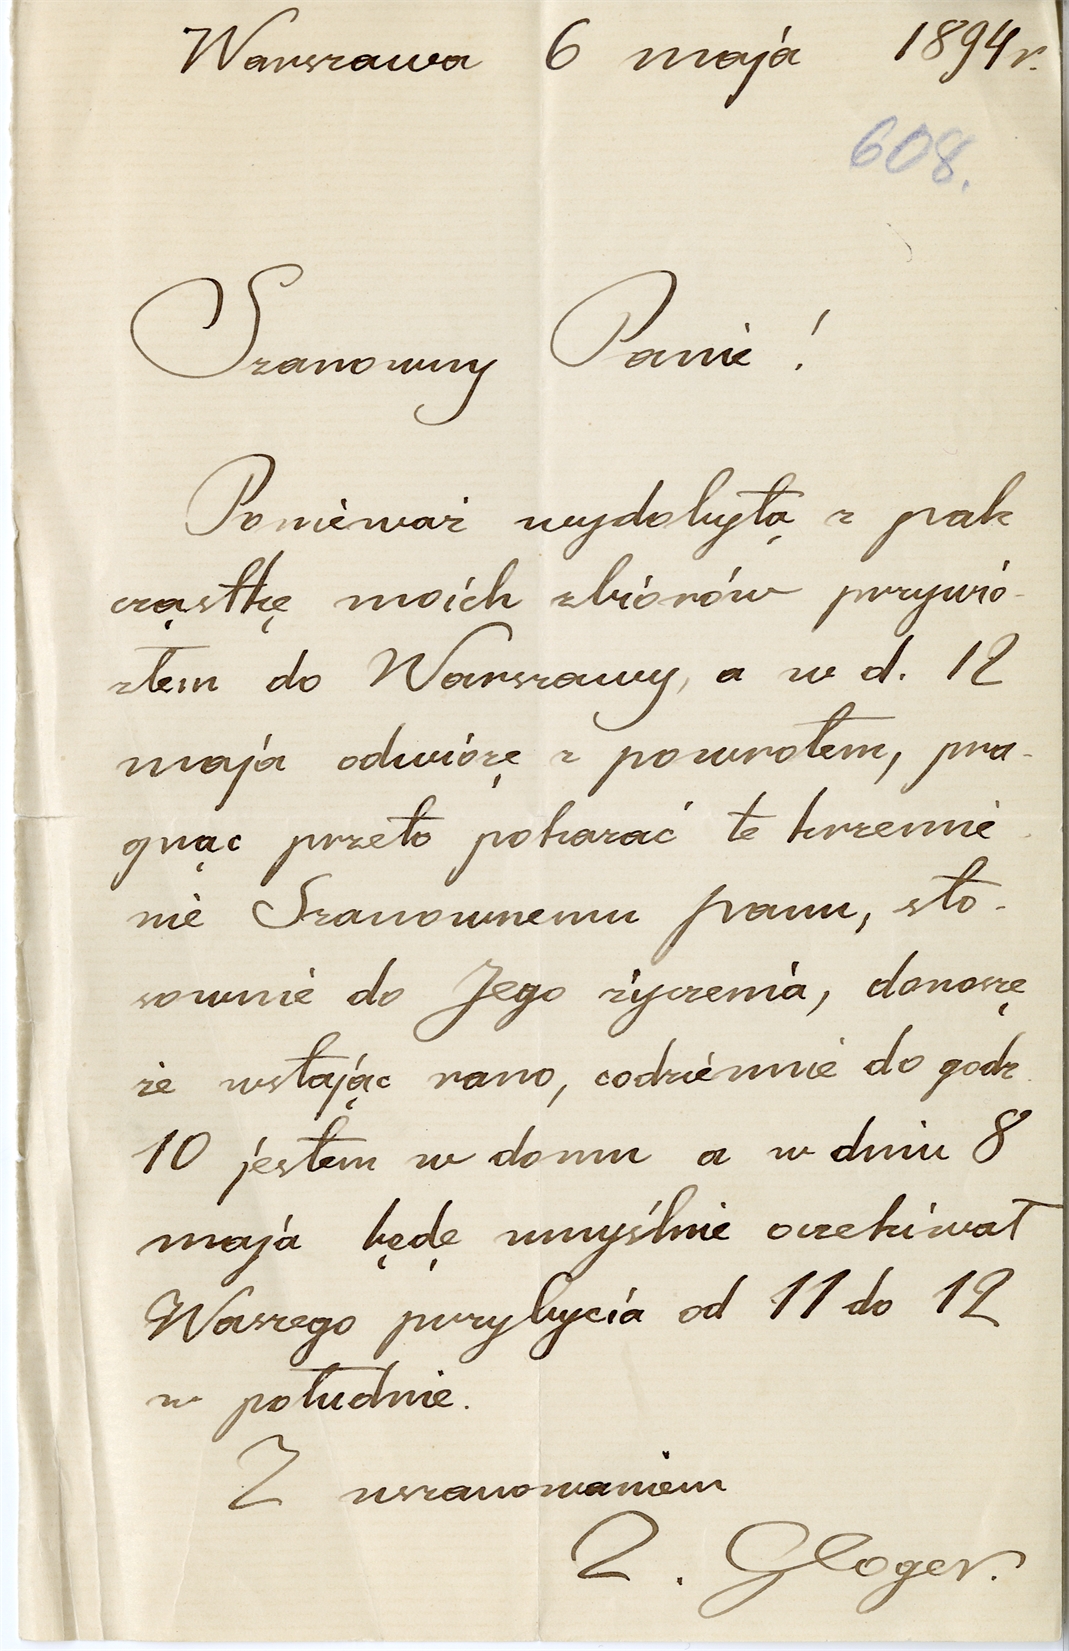 Warszawa 6 maja 1894 r.
608.
Szanowny Panie!
Ponieważ wydobytą z pak
cząstkę moich zbiorów przywio-
złem do Warszawy, a w d. 12
maja odwiozę z powrotem, pra-
gnąc przeto pokazać te krzemie-
nie Szanownemu panu, sto-
sownie do Jego życzenia, donoszę
że wstając rano, codziennie do godz.
10 jestem w domu a w dniu 8
maja będę umyślnie oczekiwał
Waszego przybycia od 11 do 12
w południe.
Z uszanowaniem
Z. Gloger.